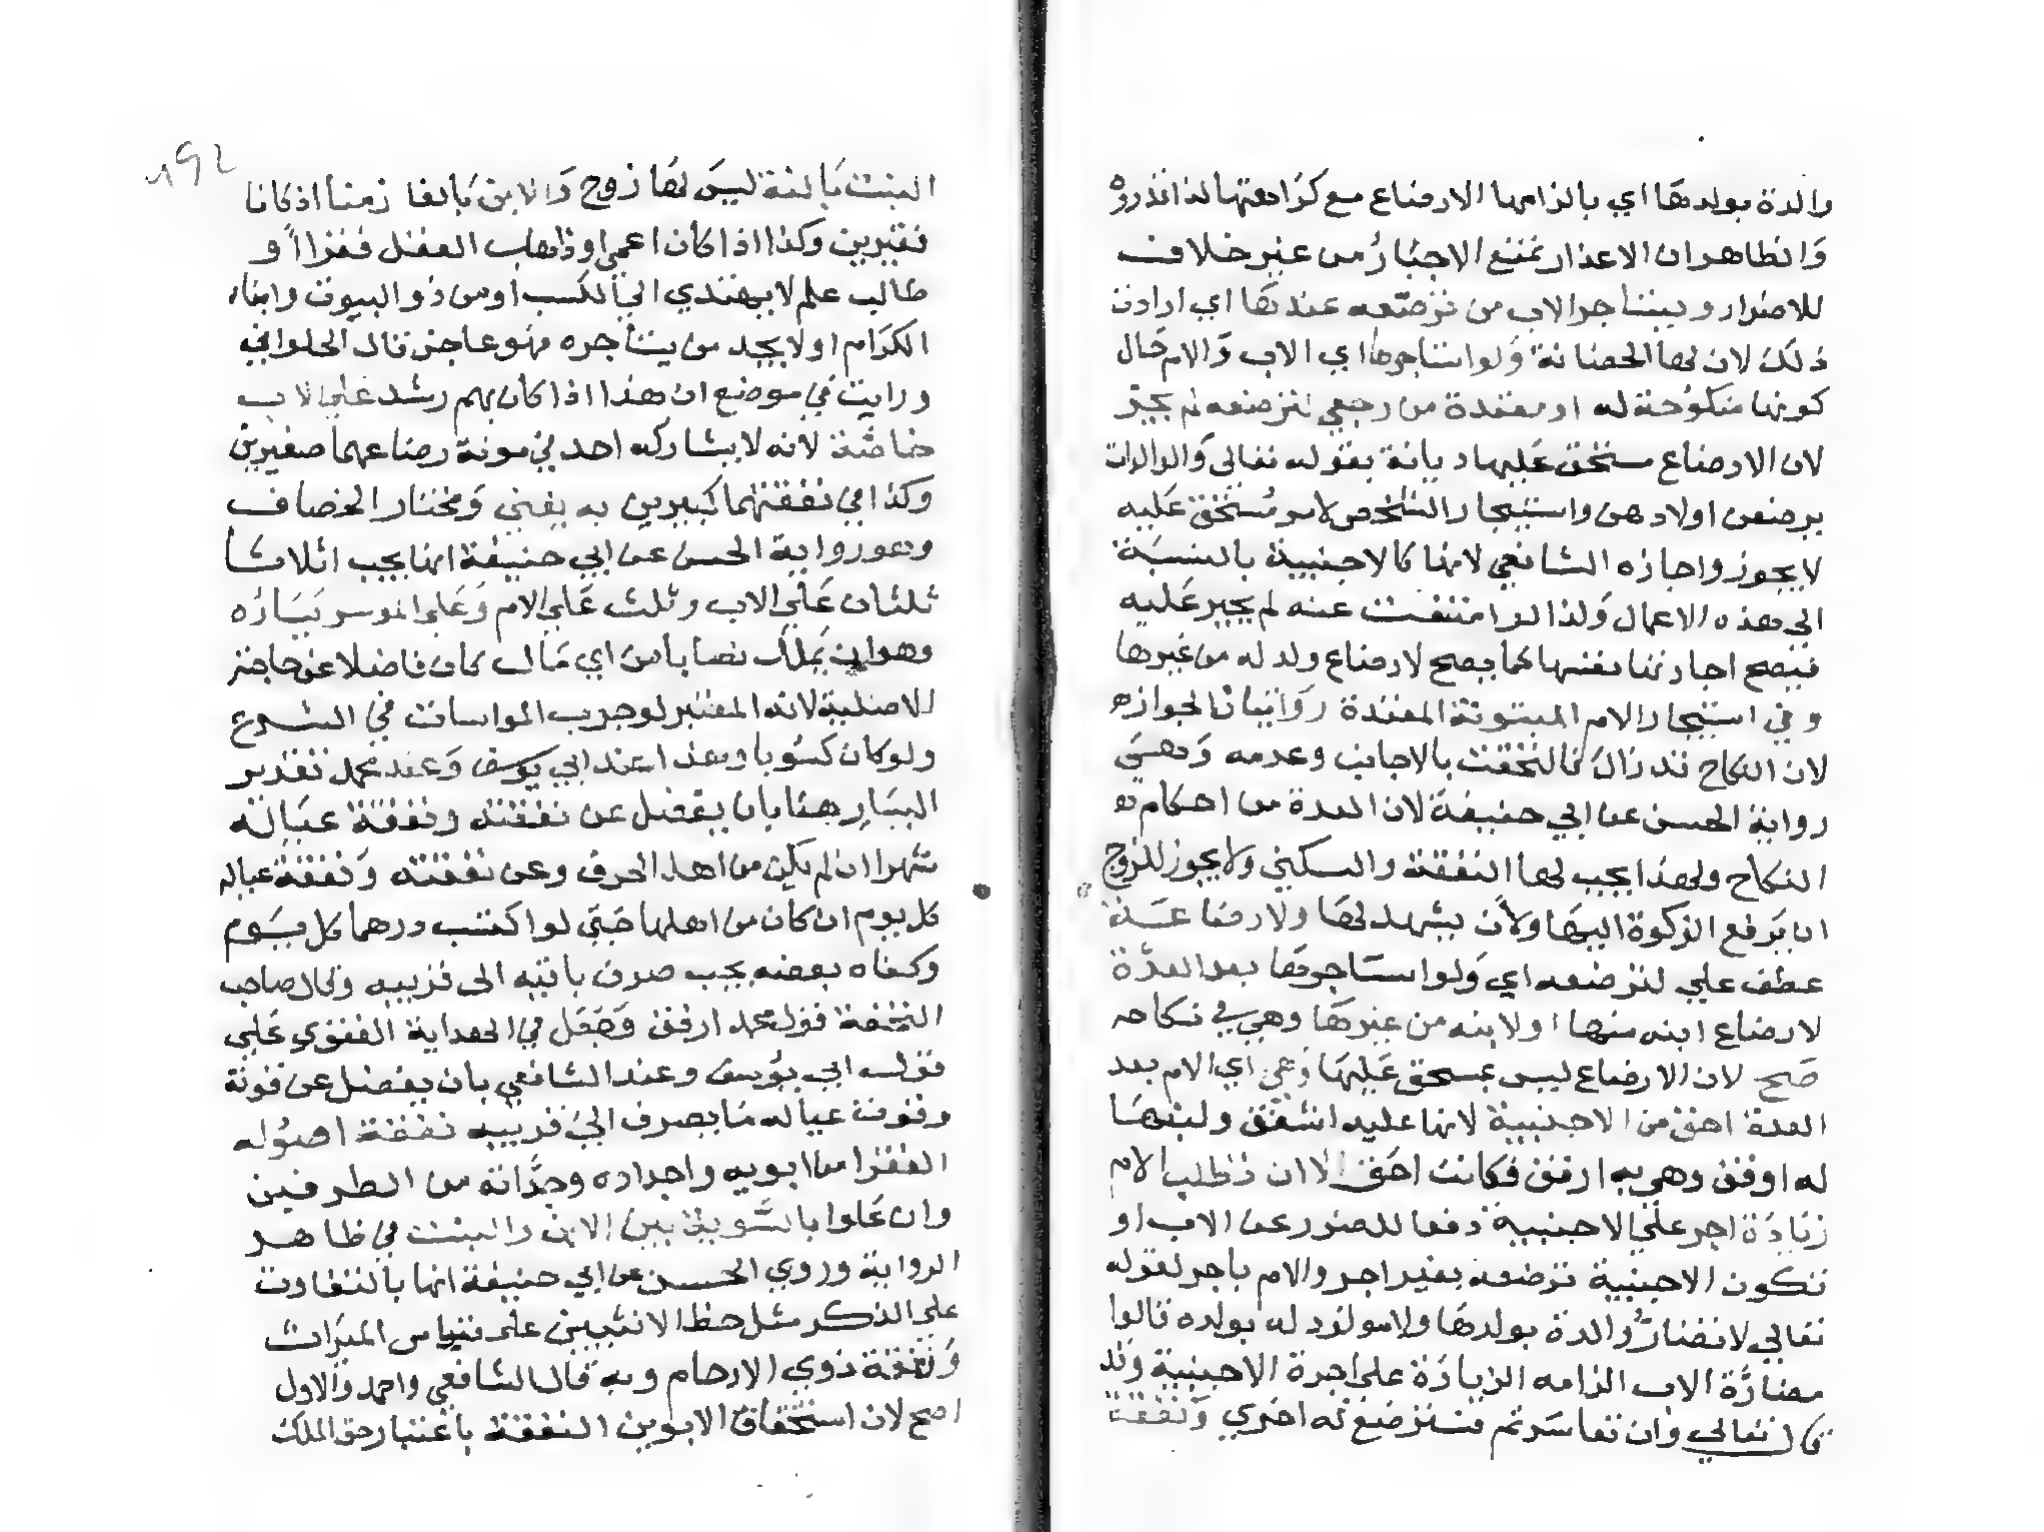 والدة بولدها اي بالزامها الارضاع مع كراهتها لذا قدروه
والظاهر ان الاعذار تمنع الاجبار من غير خلاف
للاضرار ويستاجر الاب من ترضعه عندها اي ارادت
ذلك لان لها الحضانة ولو استاجرها اي الاب والام حال
كونها منكوحة له او معتدة من رجعي لترضعه لم يجز
لان الارضاع مستحق عليها ديانة بقوله تعالي والوالدات
يرضعن اولادهن واستيجار الشخص لامر مستحق عليه
لا يجوز واجازه الشافعي لانها كالاجنبية بالنسبة
الى هذه الاعمال ولذا لو امتنعت عنه لم يجبر عليه
فيصح اجارتها نفسها كما يصح لارضاع ولد له من غيرها
وفي استيجار الام المبتوتة المعتدة روايتان الجوازه
لان النكاح قد زال فالتحقت بالاجانب وعدمه وهي
رواية الحسن عن ابي حنيفة لان العدة من احكام
النكاح ولهذا يجب لها النفقة والسكني ولا يجوز للزوج
ان يرفع الزكوة اليها ولان يشهد لها ولارضاعه
عطف علي لترضعه اي ولو استاجرها بعد العدة
لارضاع ابنه منها او لابنه من غيرها وهي في نكاحه
صح لان الارضاع ليس بمستحق عليها وهي اي الام بعد
العدة احق من الاجنبية لانها عليه اشفق ولبنها
له اوفق وهي به ارفق فكانت احق الا ان تطلب الام
زيادة اجر علي الاجنبية دفعا للضرر عن الاب او
تكون الاجنبية ترضعه بغير اجر والام باجر لقوله
تعالي لا تضار والدة بولدها ولا مولود له بولده قالوا
مضارة الاب الزامه الزيادة على اجرة الاجنبية وقد
قال تعالي وان تعاسرتم فسترضع له اخري ونفقة
١٩٢
البنت بالغة ليس لها زوج والابن بالغا زمنا اذ كانا
فقيرين وكذا اذا كان اعمي او ذاهب العقل فقرا او
طالب علم لا يهتدي الي الكسب او من ذو البيوت وابناء
الكرام او لا يجد من يستاجره فهو عاجز قال الحلواني
ورايت في موضع ان هذا اذا كان بهم رشد علي الاب
خاصة لانه لا يشاركه احد في مونة رضاعهما صغيرين
وكذا في نفقتهما كبيرين به يفتي ومختار الخصاف
وهو رواية الحسن عن ابي حنيفة انها يجب اثلاثا
ثلثان علي الاب وثلث علي الام وعلي الموسر يساره
وهو ان يملك نصابا من اي مال كان فاضلا عن حاجته
الاصلية لانه المعتبر لوجوب المواسات في الشرع
ولو كان كسوبا وهذا عند ابي يوسف وعند محمد تقدير
اليسار هنا بان يفضل عن نفقته ونفقة عياله
شهرا ان لم يكن من اهل الحرف وعن نفقته ونفقة عياله
كل يوم ان كان من اهلها حتي لو اكتسب درهما كل يوم
وكفاه بعضه يجب صرف باقيه الى قريبه وقال صاحب
التحفة قول محمد ارفق وجعل في الهداية الفتوي علي
قول ابي يوسف وعند الشافعي بان يفضل عن قوته
وقوت عياله ما يصرف الي قريبه نفقة اصوله
الفقرا من ابويه واجداده وجداته من الطرفين
وان علوا بالسوية بين الابن والبنت في ظاهر
الرواية وروي الحسن عن ابي حنيفة انها بالتفاوت
على الذكر مثل حظ الانثيين على قياس الميراث
ونفقة ذوي الارحام وبه قال الشافعي واحمد والاول
اصح لان استحقاق الابوين النفقة باعتبار حق الملك